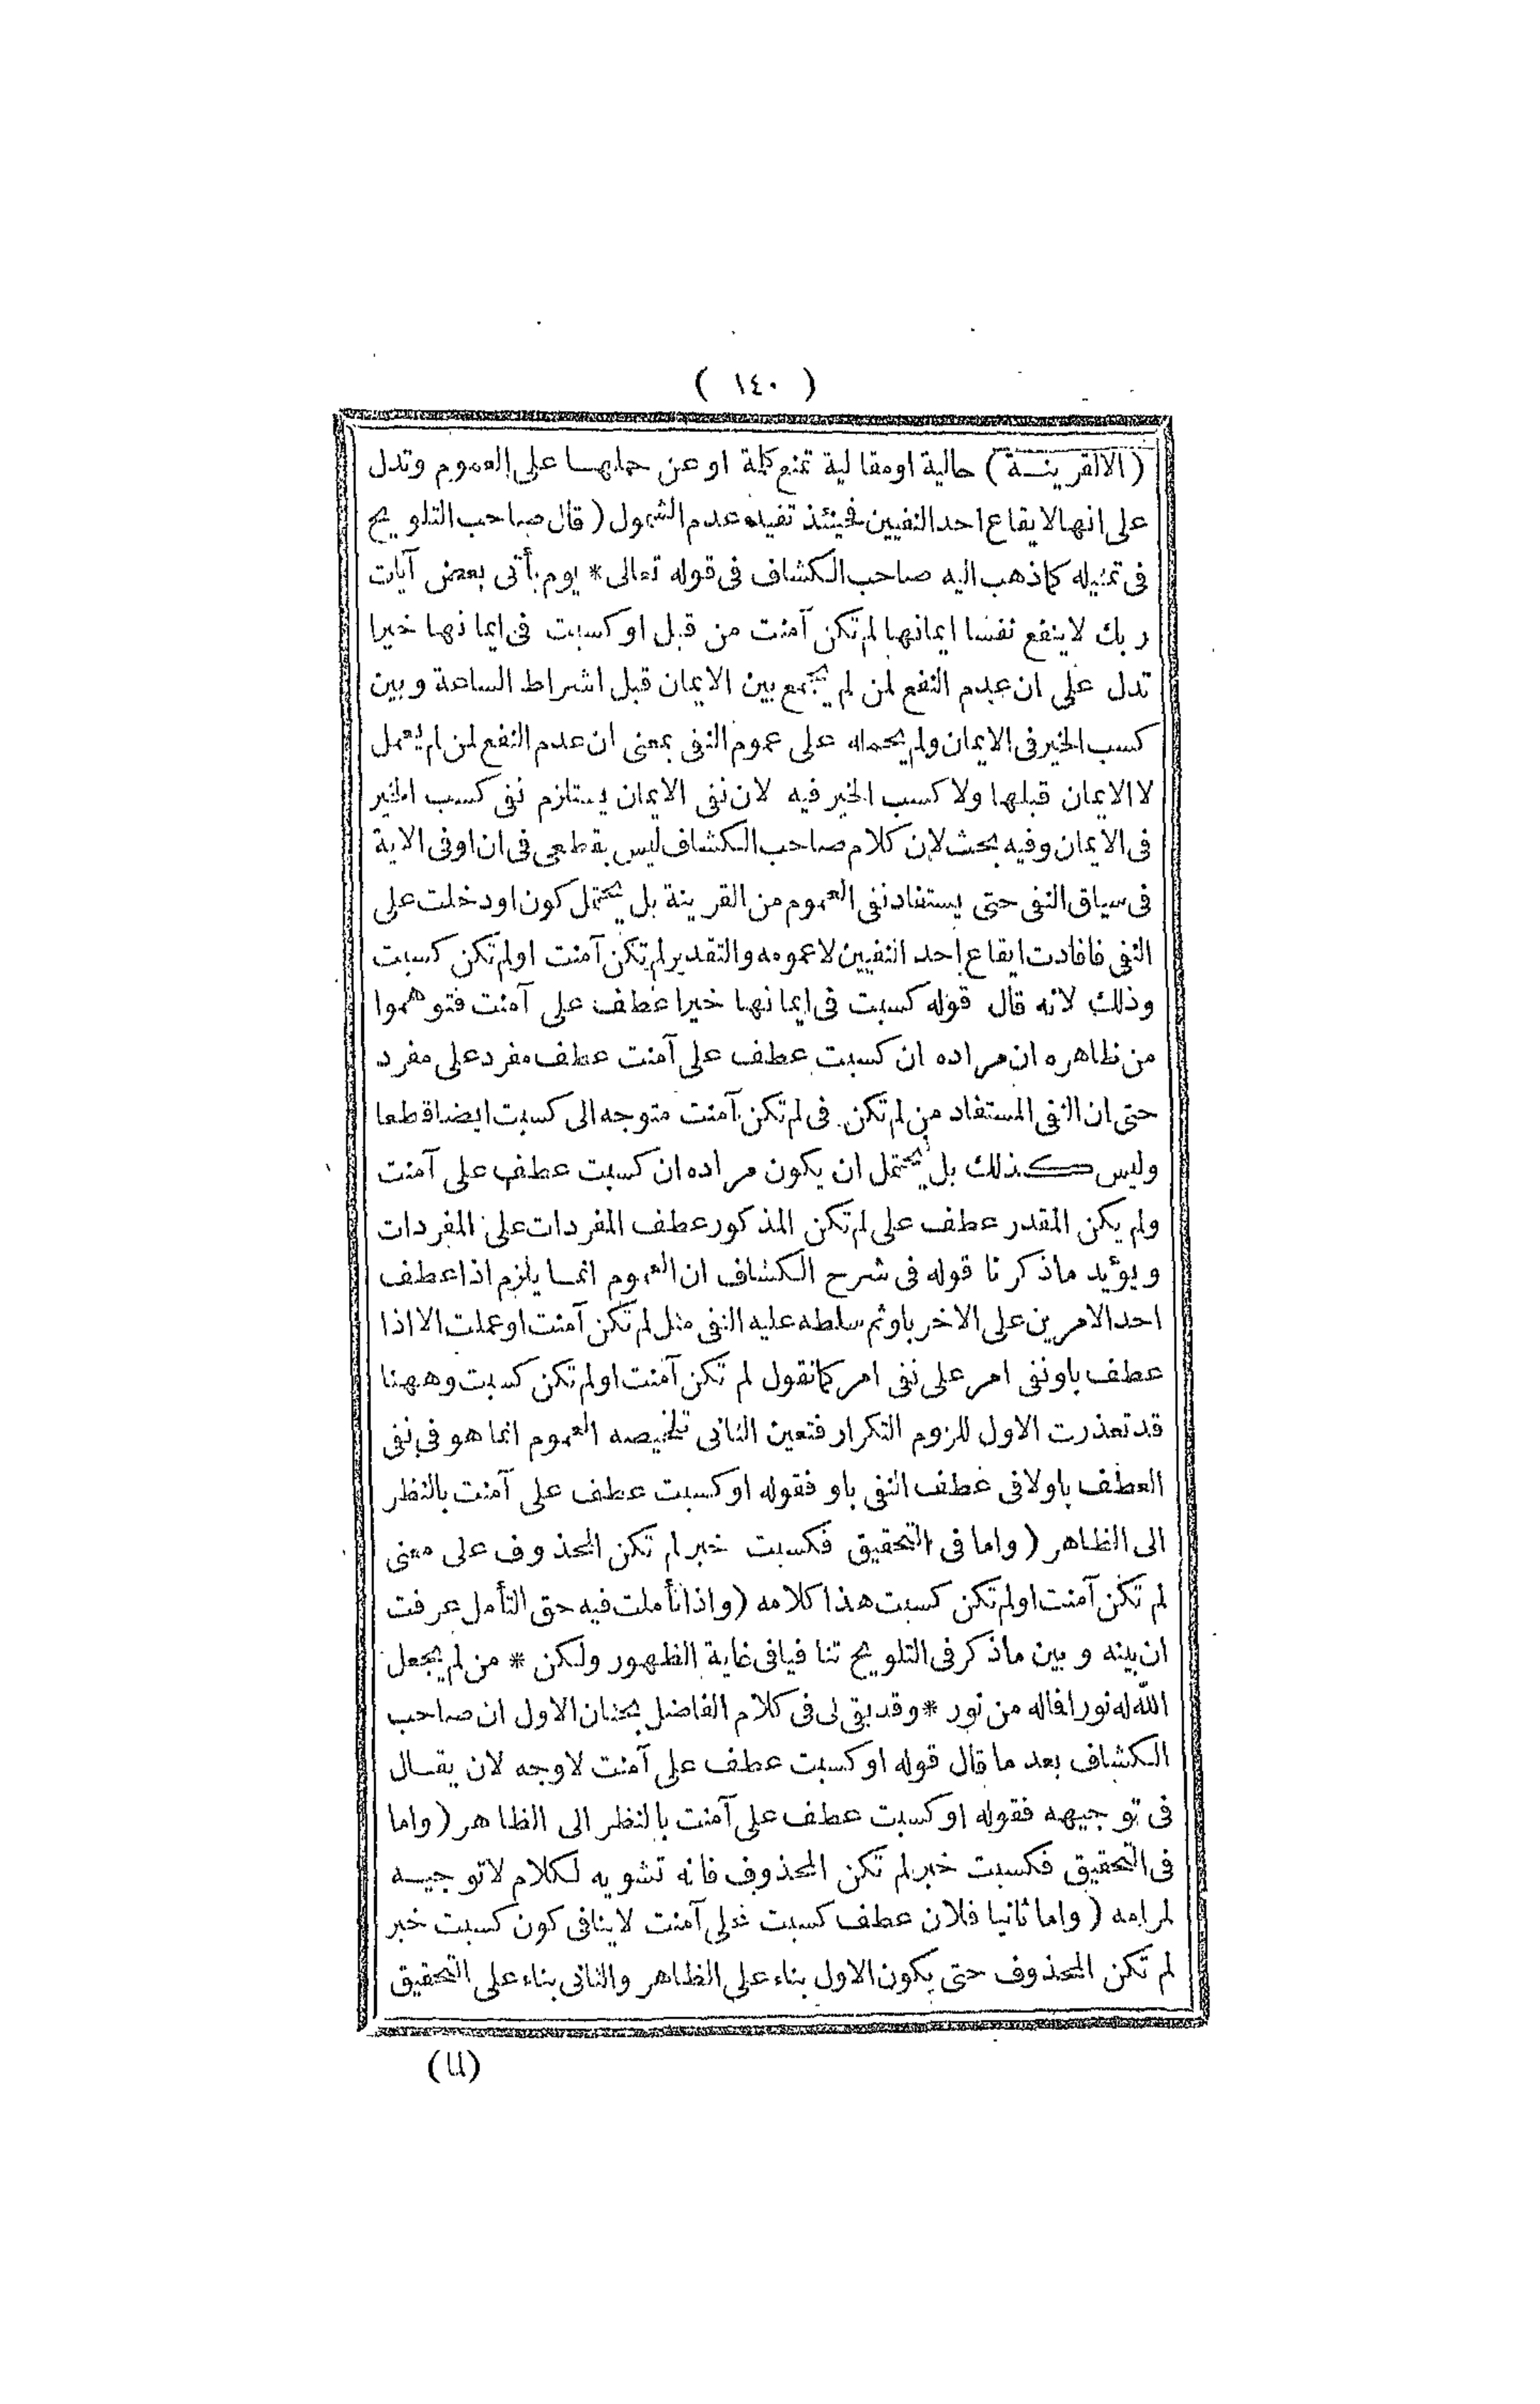 ( ١٤٠ )
(الالقرينة) حالية اومقالية تمنع كلمة او عن حملها على العموم وتدل
على انها لايقاع احد النفيين فحينئذ تفيد عدم الشمول (قال صاحب التلويح
فى تمثيله كما ذهب اليه صاحب الكشاف فى قوله تعالى * يوم يأتى بعض آيات
ربك لاينفع نفسا ايمانها لم تكن آمنت من قبل او كسبت فى ايمانها خيرا
تدل على ان عدم النفع لمن لم يجمع بين الايمان قبل اشراط الساعة وبين
كسب الخير فى الايمان ولم يحمله على عموم النفى بمعنى ان عدم النفع لمن لم يعمل
لا الايمان قبلها ولا كسب الخير فيه لان نفى الايمان يستلزم نفى كسب الخير
فى الايمان وفيه بحث لان كلام صاحب الكشاف ليس بقطعى فى ان اوفى الاية
فى سياق النفى حتى يستفاد نفى العموم من القرينة بل يحتمل كون او دخلت على
النفى فافادت ايقاع احد النفيين لاعمومه والتقدير لم تكن آمنت اولم تكن كسبت
وذلك لانه قال قوله كسبت فى ايمانها خيرا عطف على آمنت فتوهموا
من ظاهره ان مراده ان كسبت عطف على آمنت عطف مفرد على مفرد
حتى ان النفى المستفاد من لم تكن فى لم تكن آمنت متوجه الى كسبت ايضا قطعا
وليس كذلك بل يحتمل ان يكون مراده ان كسبت عطف على آمنت
ولم يكن المقدر عطف على لم تكن المذكور عطف المفردات على المفردات
ويؤيد ماذكرنا قوله فى شرح الكشاف ان العموم انما يلزم اذا عطف
احد الامرين على الاخر باو ثم سلطه عليه النفى مثل لم تكن آمنت او عملت الا اذا
عطف باو نفى امر على نفى امر كما نقول لم تكن آمنت اولم تكن كسبت وههنا
قد تعذرت الاول للزوم التكرار فتعين الثانى تلخيصه العموم انما هو فى نفى
العطف باو لا فى عطف النفى باو فقوله او كسبت عطف على آمنت بالنظر
الى الظاهر (واما فى التحقيق فكسبت خبر لم تكن المحذوف على معنى
لم تكن آمنت اولم تكن كسبت هذا كلامه (واذا تأملت فيه حق التأمل عرفت
ان بينه وبين ماذكر فى التلويح تنافيا فى غاية الظهور ولكن * من لم يجعل
الله له نورا فماله من نور * وقد بقى لى فى كلام الفاضل بحثان الاول ان صاحب
الكشاف بعد ما قال قوله او كسبت عطف على آمنت لاوجه لان يقال
فى توجيهه فقوله او كسبت عطف على آمنت بالنظر الى الظاهر (واما
فى التحقيق فكسبت خبر لم تكن المحذوف فانه تشويه لكلام لاتوجيه
لمرامه (واما ثانيا فلان عطف كسبت على آمنت لاينافى كون كسبت خبر
لم تكن المحذوف حتى يكون الاول بناء على الظاهر والثانى بناء على التحقيق
(لما)